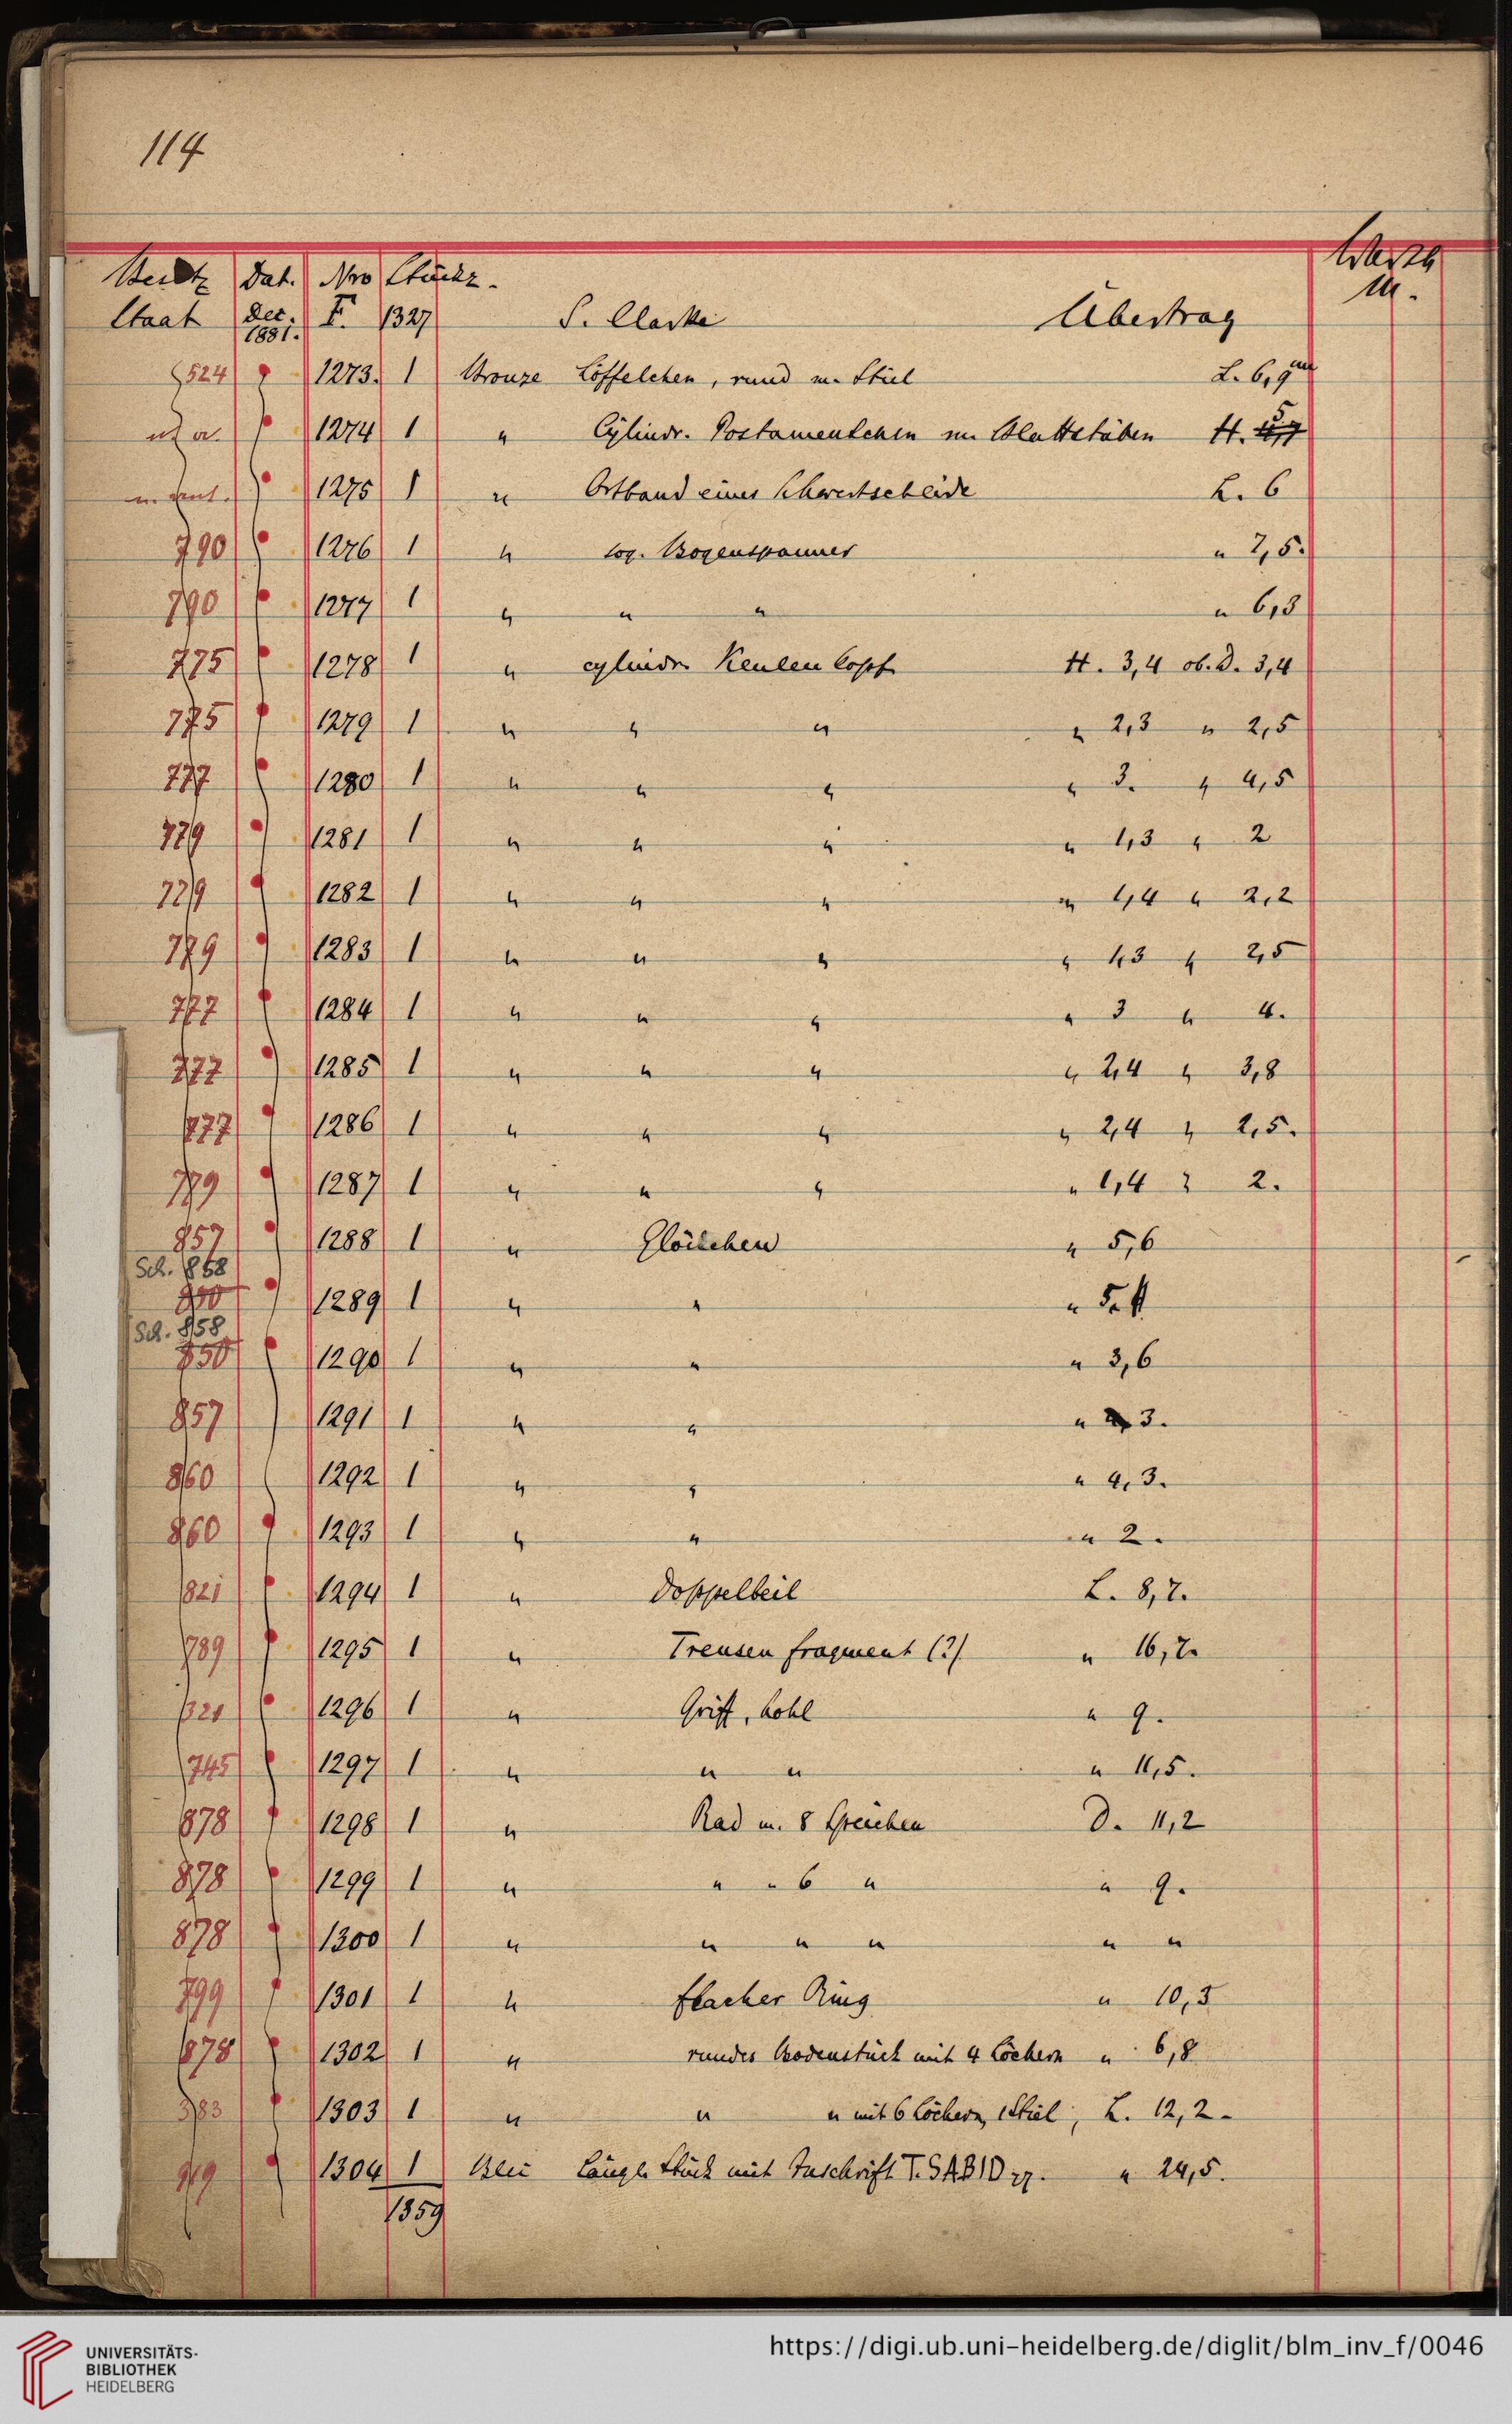 114
Besitz Dat. Nro Stückz. Werth
Staat Dec. 1881. F. 1327 S. Clarke Übertrag M.
524 1273. 1 Bronze Löffelchen, rund m. Stiel L. 6,9 cm
1274 1 " Cylindr. Postamentchen m Blattstäben H. 5
1275 1 " Ortband einer Schwertscheide L. 6
790 1276 1 " sog. Bogenspanner " 7,5.
790 1277 1 " " " " 6,3
775 1278 1 " cylindr. Keulenkopf H. 3,4 ob. D. 3,4
775 1279 1 " " " " 2,3 " 2,5
777 1280 1 " " " " 3. " 4,5
779 1281 1 " " " " 1,3 " 2
779 1282 1 " " " " 1,4 " 2,2
779 1283 1 " " " " 1,3 " 2,5
777 1284 1 " " " " 3 " 4.
777 1285 1 " " " " 2,4 " 3,8
777 1286 1 " " " " 2,4 " 2,5.
779 1287 1 " " " " 1,4 " 2.
857 1288 1 " Glöckchen " 5,6
Sch. 858
850 1289 1 " " " 5.
Sch. 858
850 1290 1 " " " 3,6
857 1291 1 " " " 3.
860 1292 1 " " " 4,3.
860 1293 1 " " " 2.
821 1294 1 " Doppelbeil L. 8,7.
789 1295 1 " Trensenfragment (?) " 16,7.
1296 1 " Griff, hohl " 9.
745 1297 1 " " " " 11,5.
878 1298 1 " Rad m. 8 Speichen D. 11,2
878 1299 1 " " " 6 " " 9.
878 1300 1 " " " " " "
799 1301 1 " flacher Ring " 10,3
878 1302 1 " rundes Bodenstück mit 4 Löchern " 6,8
383 1303 1 " " " mit 6 Löchern, 1 Stiel, L. 12,2.
919 1304 1 Blei Längl. Stück mit Inschrift T. SABID " 24,5.
1359
UNIVERSITÄTS-
BIBLIOTHEK
HEIDELBERG
https://digi.ub.uni-heidelberg.de/diglit/blm_inv_f/0046